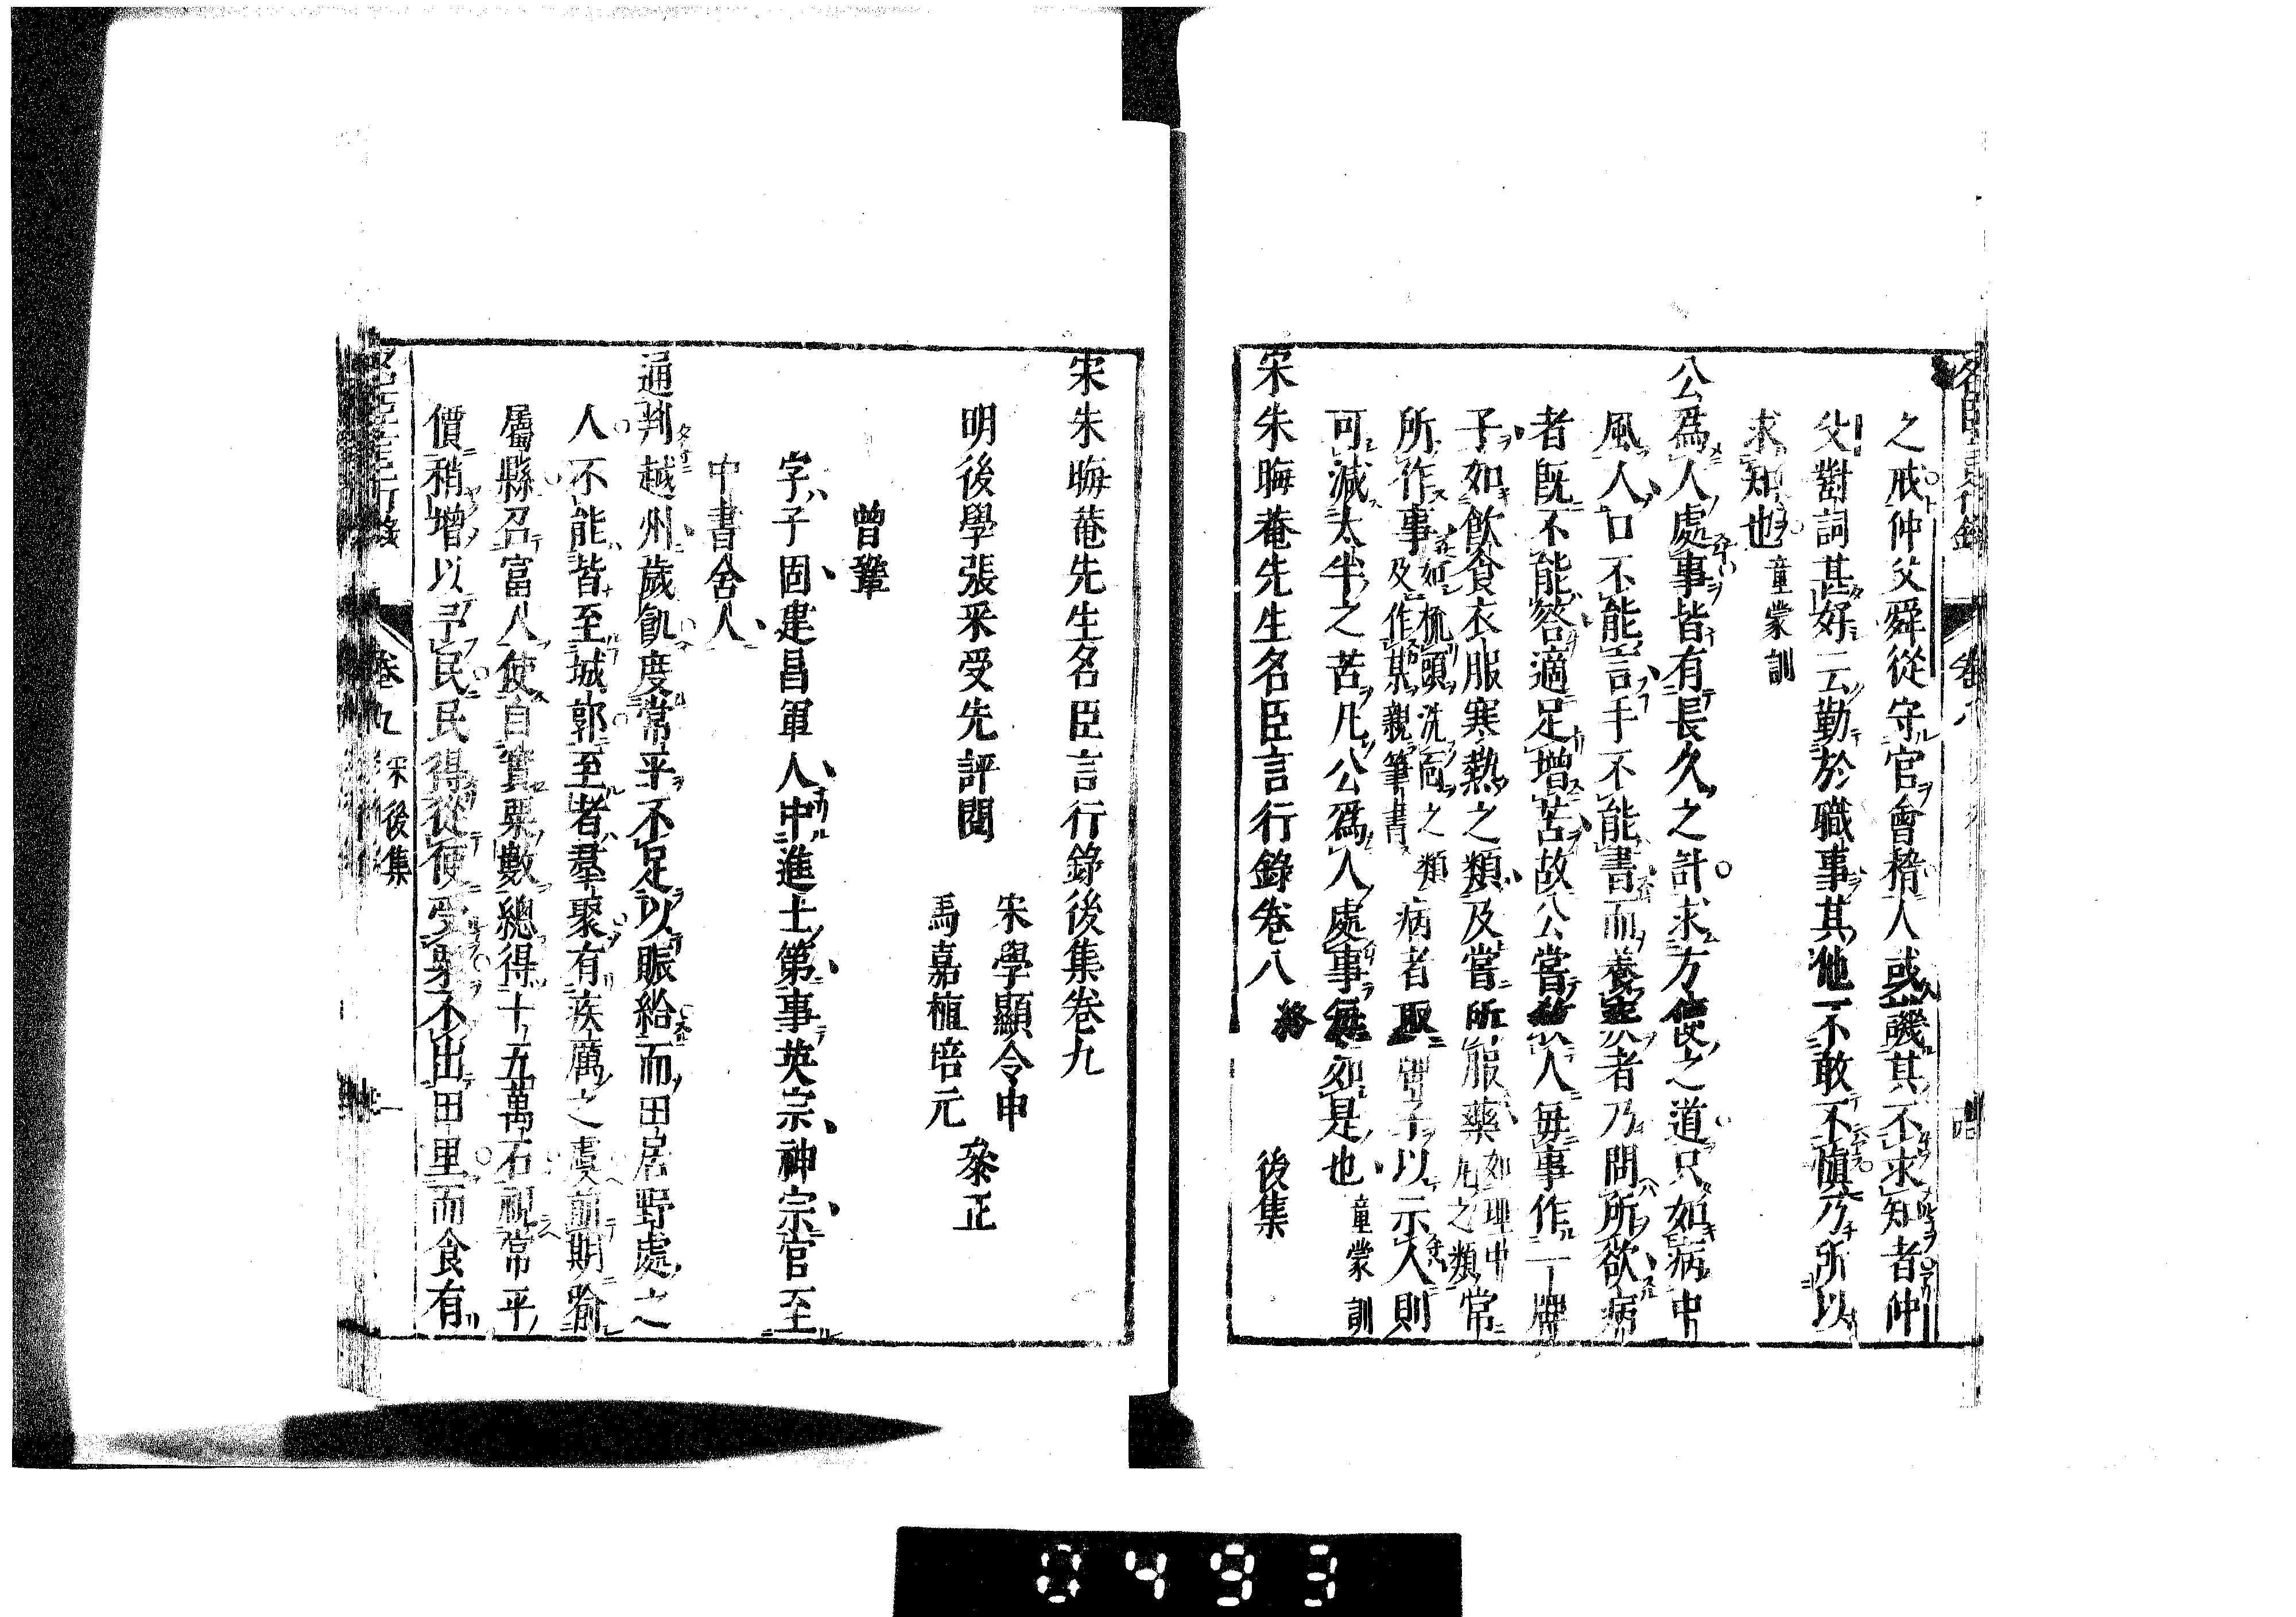 之戒仲父舜從守官會稽人或譏其不求知者仲
父對詞甚好云勤於職事其他不敢不愼乃所以
求知也童蒙訓
公爲人處事皆有長久之計求方便之道只如病中
風人口不能言手不能書而養疾者乃問所欲病
者旣不能答適足增苦故公嘗敎人每事作一牌
子如飮食衣服寒熱之類及嘗所服藥如理中圓之類常
所作事如梳頭洗面之類及作某親筆書病者取牌子以示人則
可減太半之苦凡公爲人處事每如是也童蒙訓
宋朱晦菴先生名臣言行錄卷八 終 後集
宋朱晦菴先生名臣言行錄後集卷九
宋學顯令申
明後學張采受先評閱 參正
馬嘉植培元
曾鞏
字子固建昌軍人中進士第事英宗神宗官至
中書舍人
通判越州歲飢度常平不足以賑給而田居野處之
人不能皆至城郭至者羣聚有疾厲之虞前期喻
屬縣召富人使自實粟數總得十五萬石視常平
價稍增以予民民得從便受粟不出田里而食有
卷九 宋後集
0493